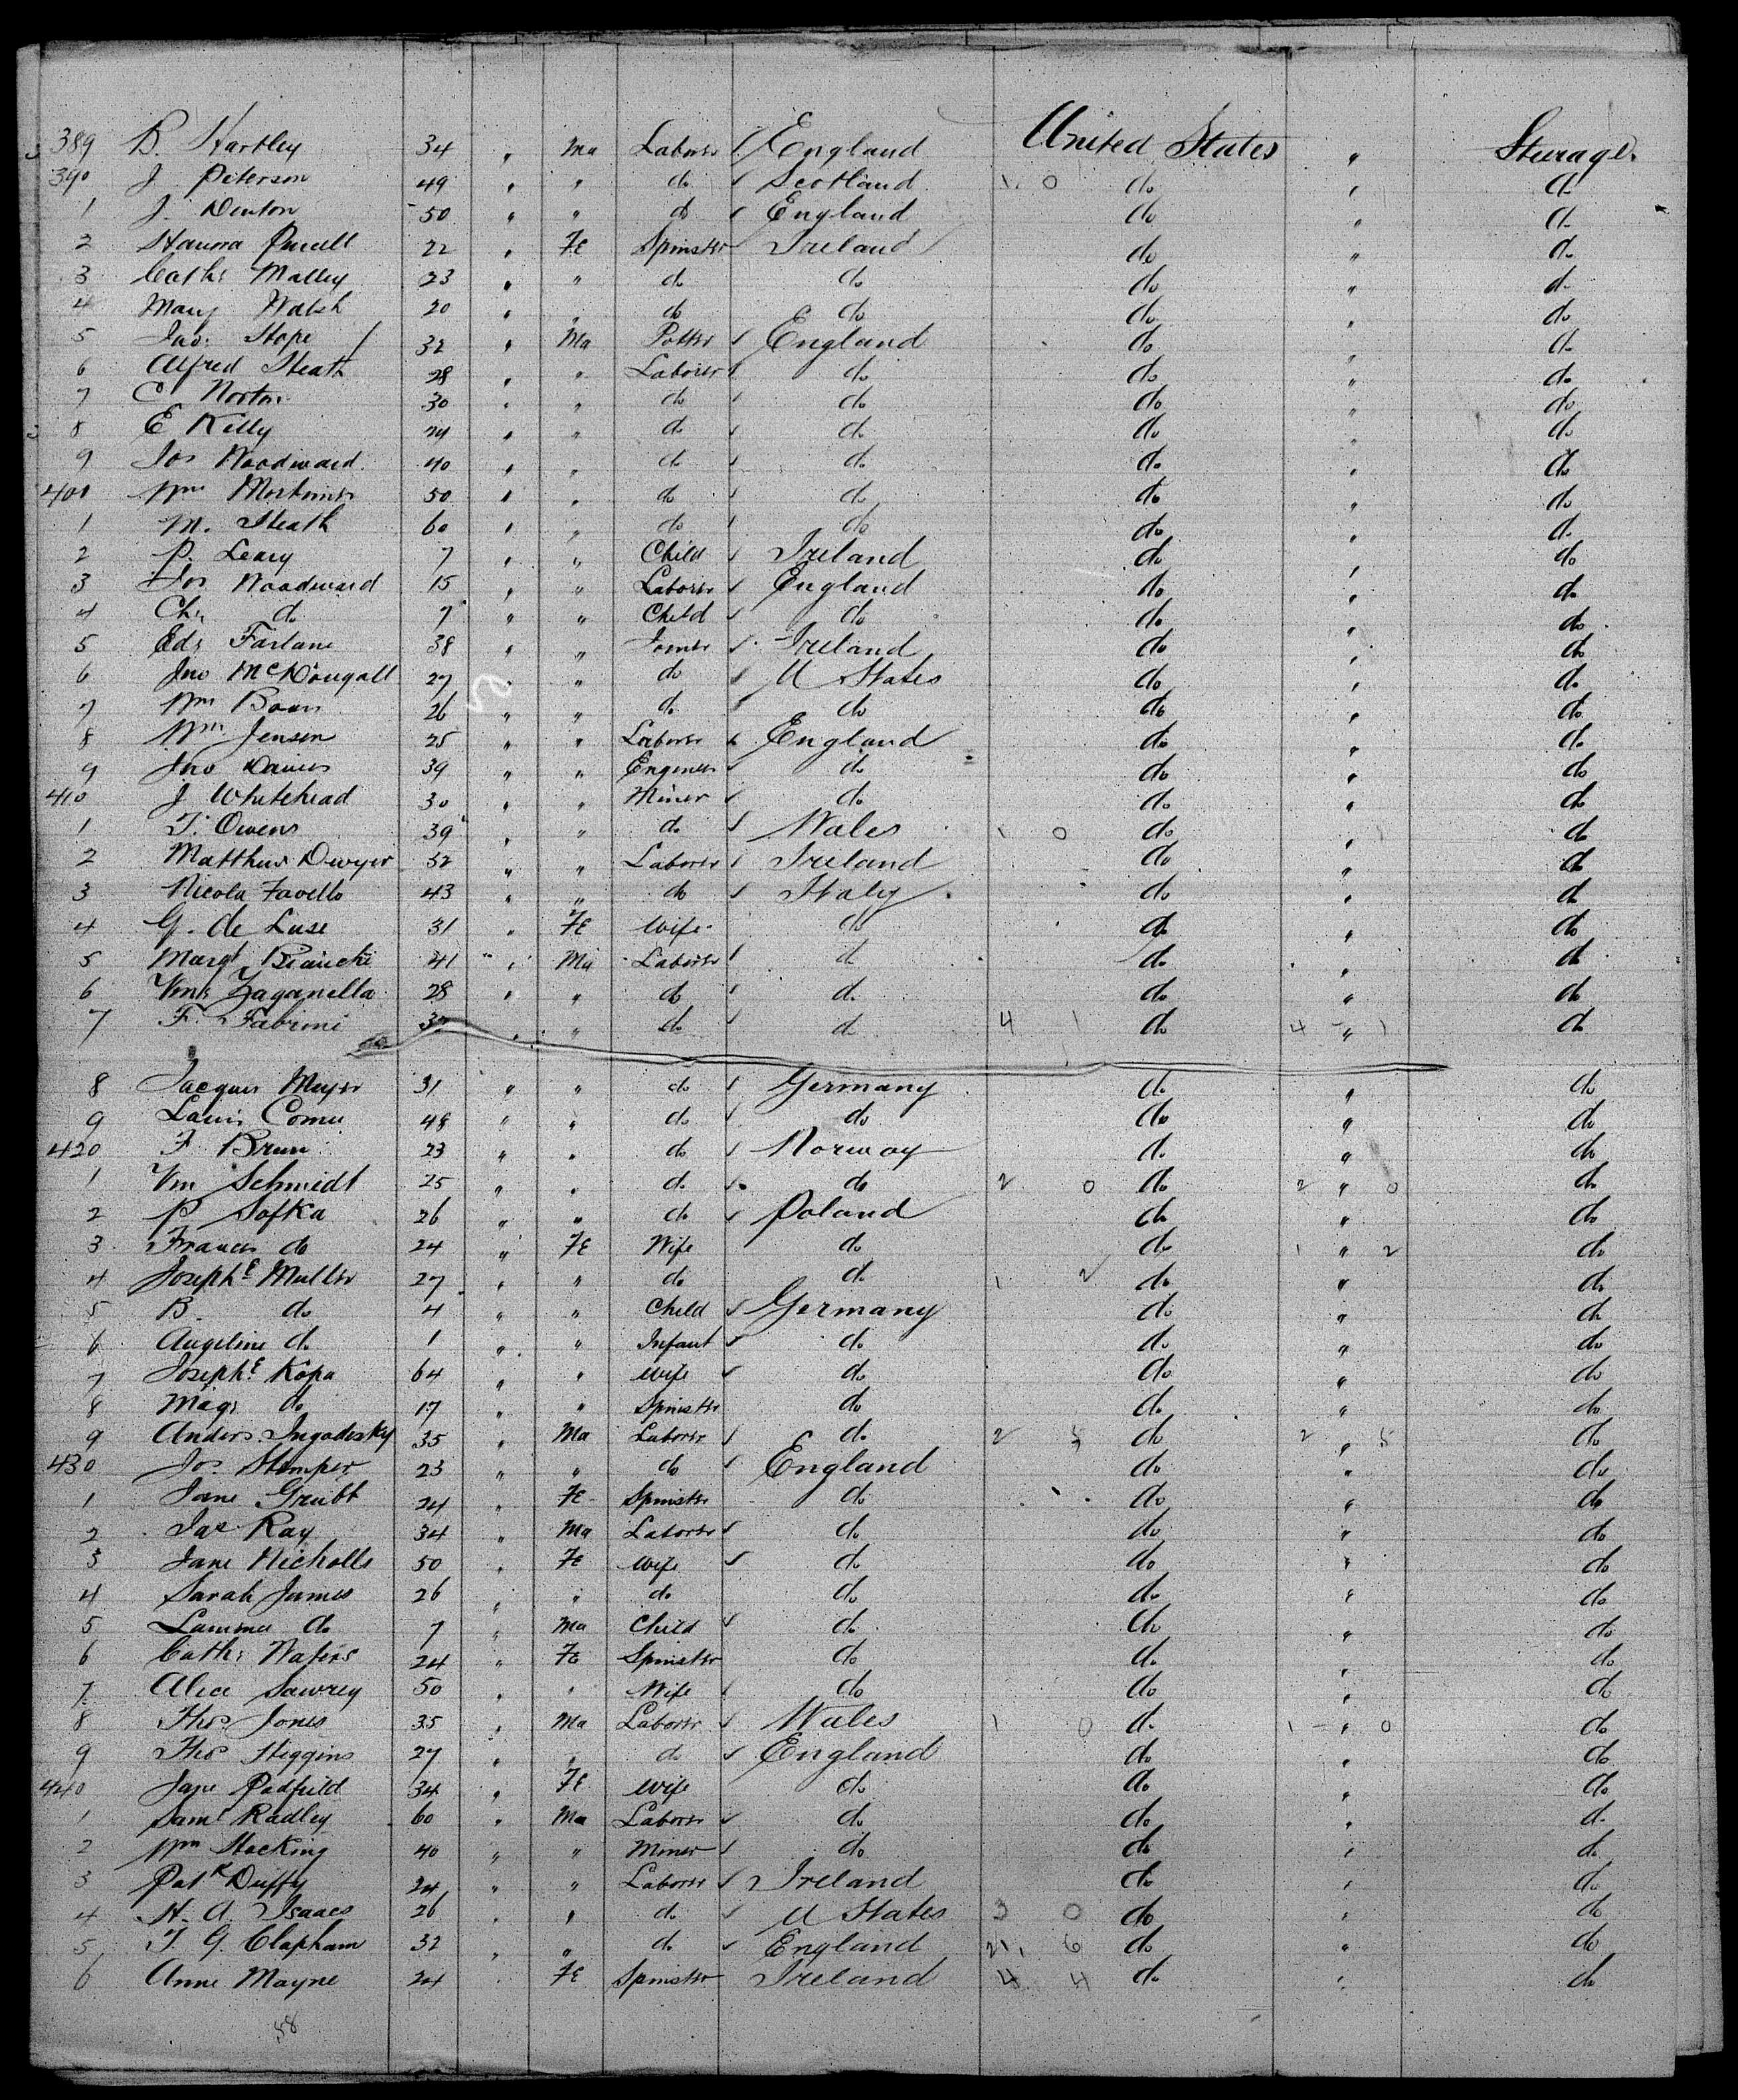 389 B. Hartley 34 " Ma Laborer England United States " Steerage.
390 J Peterson 49 " " do Scotland 1. 0 do " do
1 J. Denton 50 " " do England do " do
2 Hanora Purcell 22 " Fe Spinster Ireland do " do
3 Cathe Malley 23 " " do do do " do
4 Mary Walsh 20 " " do do do " do
5 Jas: Hope 32 " Ma Potter England do " do
6 Alfred Heath 28 " " Laborer do do " do
7 C Norton 30 " " do do do " do
8 E Kelly 24 " " do do do " do
9 Jos Woodward 40 " " do do do " do
400 Wm Mortimer 50 " " do do do " do
1 M. Heath 60 " " do do do " do
2 P. Leary 7 " " Child Ireland do " do
3 Jos Woodward 15 " " Laborer England do " do
4 Chs do 7 " " Child do do " do
5 Edr Farlane 38 " " Joiner Ireland do " do
6 Jno McDougall 27 " " do U States do " do
7 Wm 26 " " do do do " do
8 Wm Jensen 25 " " Laborer England do " do
9 Jno Davies 39 " " Engineer do do " do
410 J Whitehead 30 " " Miner do do " do
1 T. Owens 39 " " do Wales 1 0 do " do
2 Matthew Dwyer 32 " " Laborer Ireland do " do
3 Nicola Favello 43 " " do Italy do " do
4 G. de Luse 31 " Fe Wife do do " do
5 Margt Bianchi 41 " Ma Laborer do do " do
6 Vinc Zaganella 28 " " do do do " do
7 F. Fabrini " " do do 4 1 do 4 - " 1 do
8 Jacques Meyer 31 " " do Germany do " do
9 Louis Comu 48 " " do do do " do
420 F Brun 23 " " do Norway do " do
1 Vm Schmidt 25 " " do do 2 0 do 2 " 0 do
2 P Sofka 26 " " do Poland do " do
3 Frances do 24 " Fe Wife do do 1 " 2 do
4 Josephe Muller 27 " " do do 1 2 do " do
5 B. do 4 " " Child Germany do " do
6 Angeline do 1 " " Infant do do " do
7 Josephe Kopa 64 " " Wife do do " do
8 Mags do 17 " " Spinster do do " do
9 Anders Ingodesky 35 " Ma Laborer do 2 5 do 2 " 5 do
430 Jos. Stemper 23 " " do England do " do
1 Jane Grubb 24 " Fe Spinster do do " do
2 Jas Ray 34 " Ma Laborer do do " do
3 Jane Nicholls 50 " Fe Wife do do " do
4 Sarah James 26 " " do do do " do
5 do 7 " Ma Child do do " do
6 Cathe Waters 24 " Fe Spinster do do " do
7 Alice Sawrey 50 " " Wife do do " do
8 Thos Jones 35 " Ma Laborer Wales 1 0 do 1 - " 0 do
9 Thos Higgins 27 " " do England do " do
440 Jane Padfield 34 " Fe Wife do do " do
1 Saml Radley 60 " Ma Laborer do do " do
2 Wm Hocking 40 " " Miner do do " do
3 Patk Duffy 24 " " Laborer Ireland do " do
4 H. A. Isaacs 26 " " do U States 3 0 do " do
5 T. G. Clapham 32 " " do England 21. 6 do " do
6 Anne Mayne 24 " Fe Spinster Ireland 4 4 do " do
58